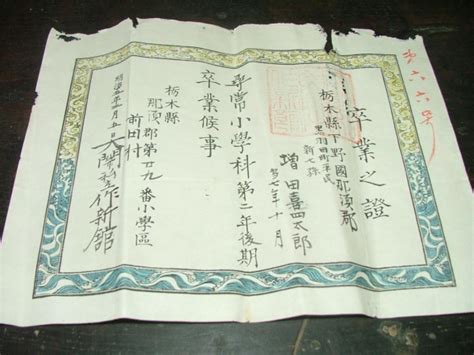 第六六号
卒業之證
栃木縣下野國那須郡
黒羽田町平民
新七孫
増田喜四太郎
七年十月
尋常小学科第二年後期
卒業候事
栃木縣
那須郡第廿九番小學區
前田村
私立作新館